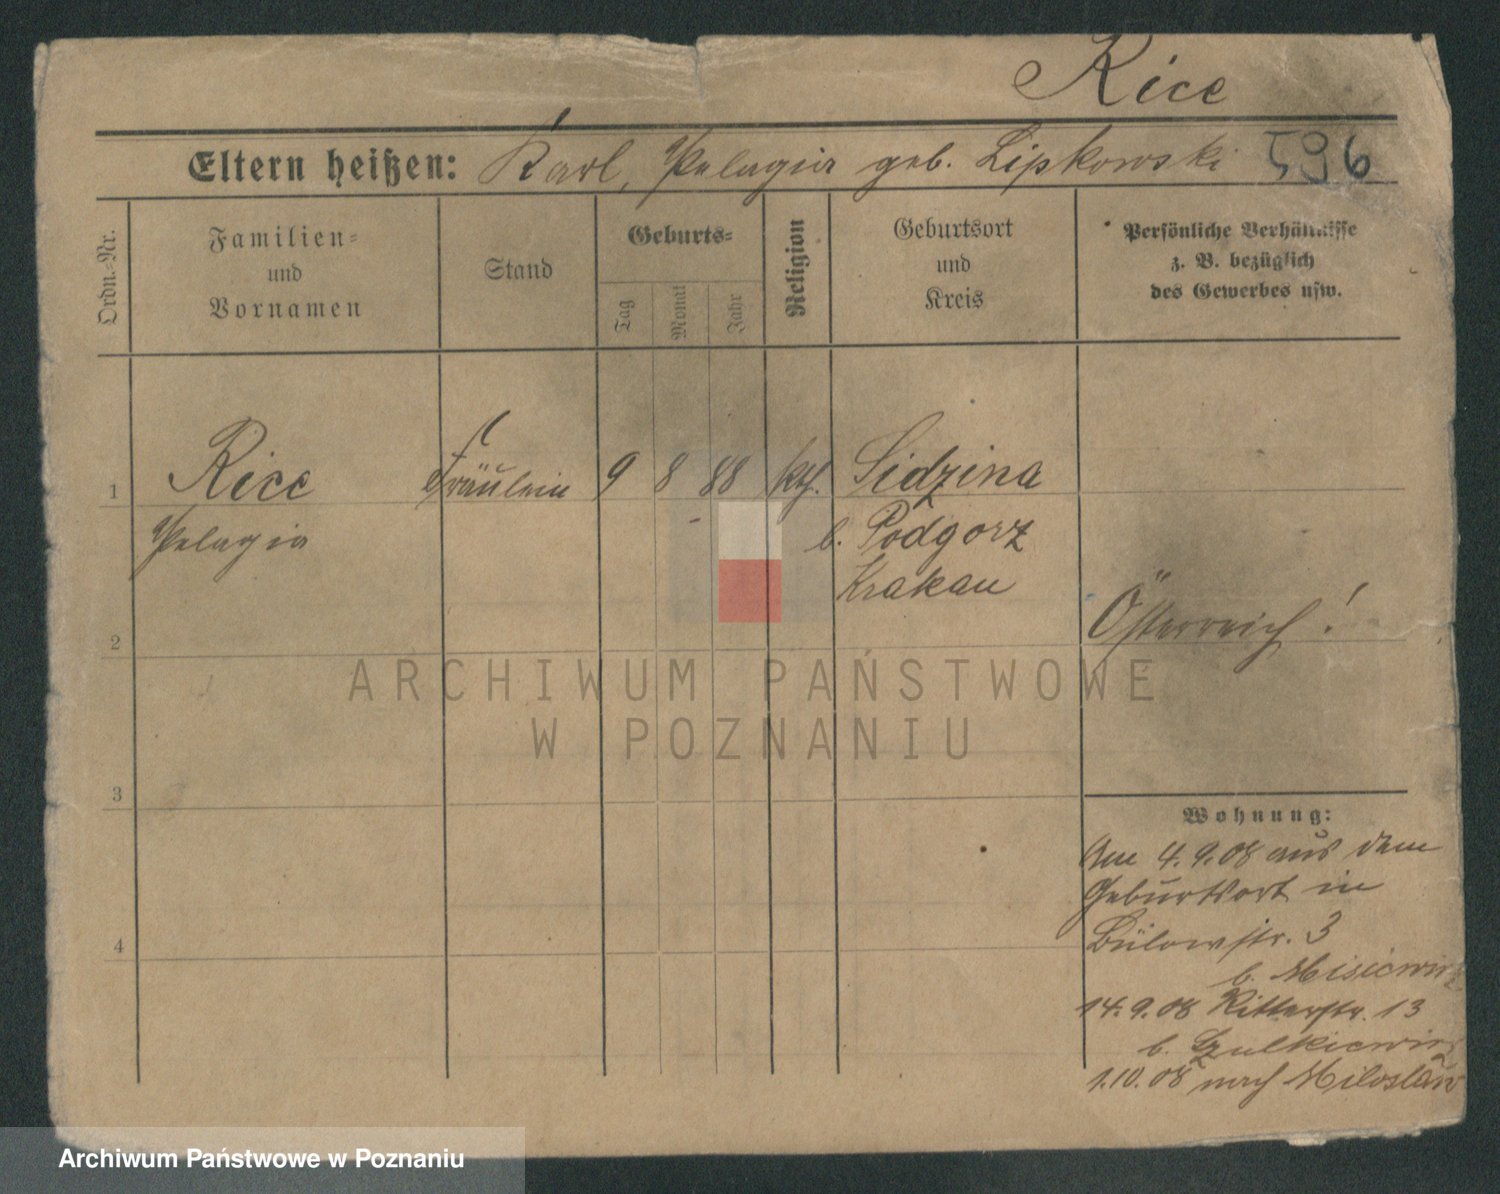 Rice
Eltern heißen: Karl, Pelagia geb. Lipkowski 596
Ordn.-Nr.
Familien-
und
Vornamen
Stand
Geburts-
Tag
Monat
Jahr
Religion
Geburtsort
und
Kreis
Persönliche Verhältnisse
z. B. bezüglich
des Gewerbes usw.
1 Rice Fräulein 9 8 88 kth. Sidzina
Pelagia b. Podgorz
Krakau
Österreich!
2
ARCHIWUM PAŃSTWOWE
W POZNANIU
3
Wohnung:
Am 4.9.08 aus dem
Geburtsort in
4
Bülowstr. 3
b. Misiewicz
14.9.08 Ritterstr. 13
b. Szulkiewicz
1.10.08 nach Miloslaw
Archiwum Państwowe w Poznaniu